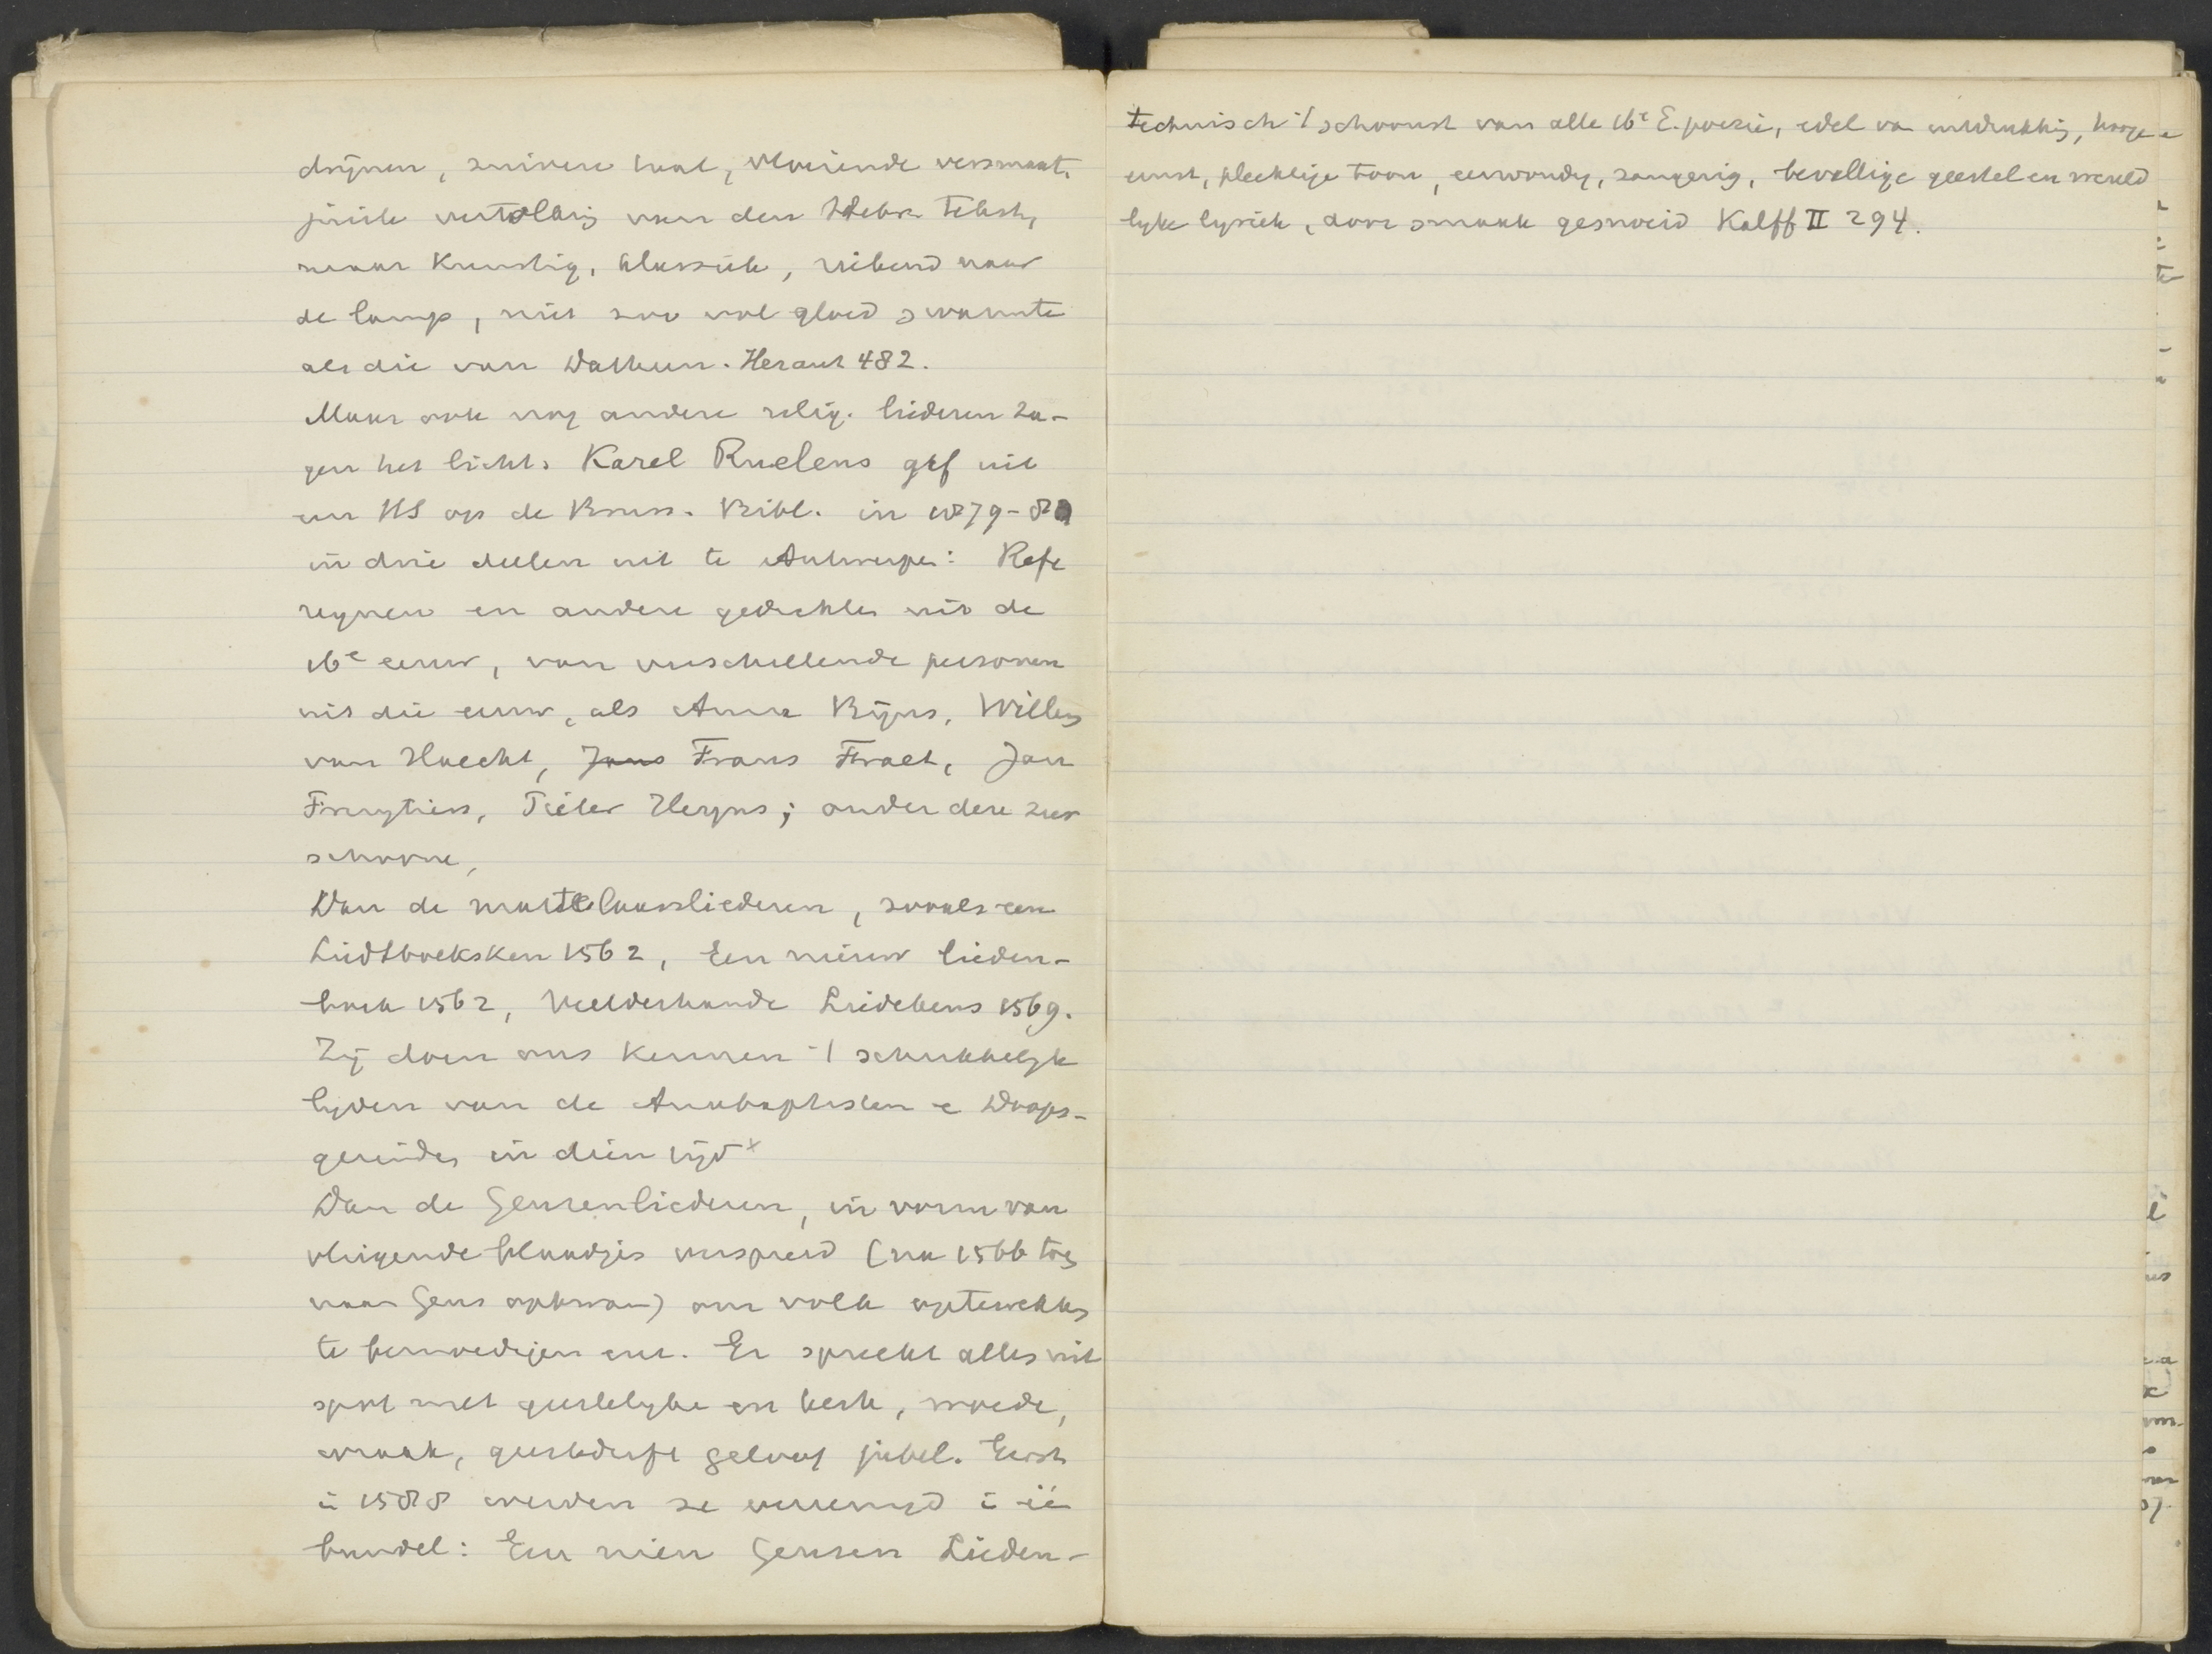 drijnen, zuivere taal, vloeiende versmaat,
juiste vertaling van den Hebr. tekst,
maar Kunstig, klassiek, riekend naar
de lamp, niet zoo vol gloed & warmte
als die van Datheen. Heraut 482.
Maar ook nog andere relig. liederen za-
gen het licht. Karel Ruelens gaf uit
een HS op de Bruss. Bibl. in 1879-81
in drie deelen uit te Antwerpen: Refe
reynen en andere gedichten uit de
16e eeuw, van verschillende personen
uit die eeuw, als Anna Bijns, Willem
van Haecht, Jans Frans Fraet, Jan
Fruytiers, Peeter Heyns; onder deze zeer
schoone,
Dan de martelaarsliederen, zooals een
Liedtboeksken 1562, Een nieuw lieden-
boek 1562, Veelderhande Liedekens 1569.
Zij doen ons kennen 't schrikkelijk
lijden van de Anabaptisten e Doops-
gezinden in dien tijd x
Dan de Geuzenliederen, in vorm van
vliegende blaadjes verspreid (na 1566 toen
naam Geus opkwam) om volk optewekken
te bemoedigen enz. Er spreekt alles uit
spot met geestelijke en kerk, woede,
wraak, geestdrift geloof jubel. Eerst
in 1588 werden ze vereenigd in één
bundel: Een nieu Geusen Lieden-
technisch 't schoonst van alle 16e E. poezie, edel van uitdrukking, hooge
ernst, plechtige toon, eenvoudig, zangerig, bevallige geestel en wereld
lyke lyriek, door smaak gesnoeid Kalff II 294.